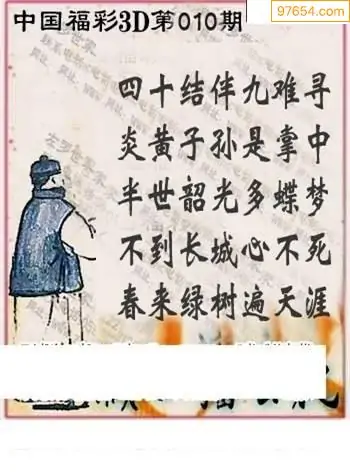 97654.com
中国福彩3D第010期
四十结伴九难寻
炎黄子孙是掌中
半世韶光多蝶梦
不到长城心不死
春来绿树遍天涯